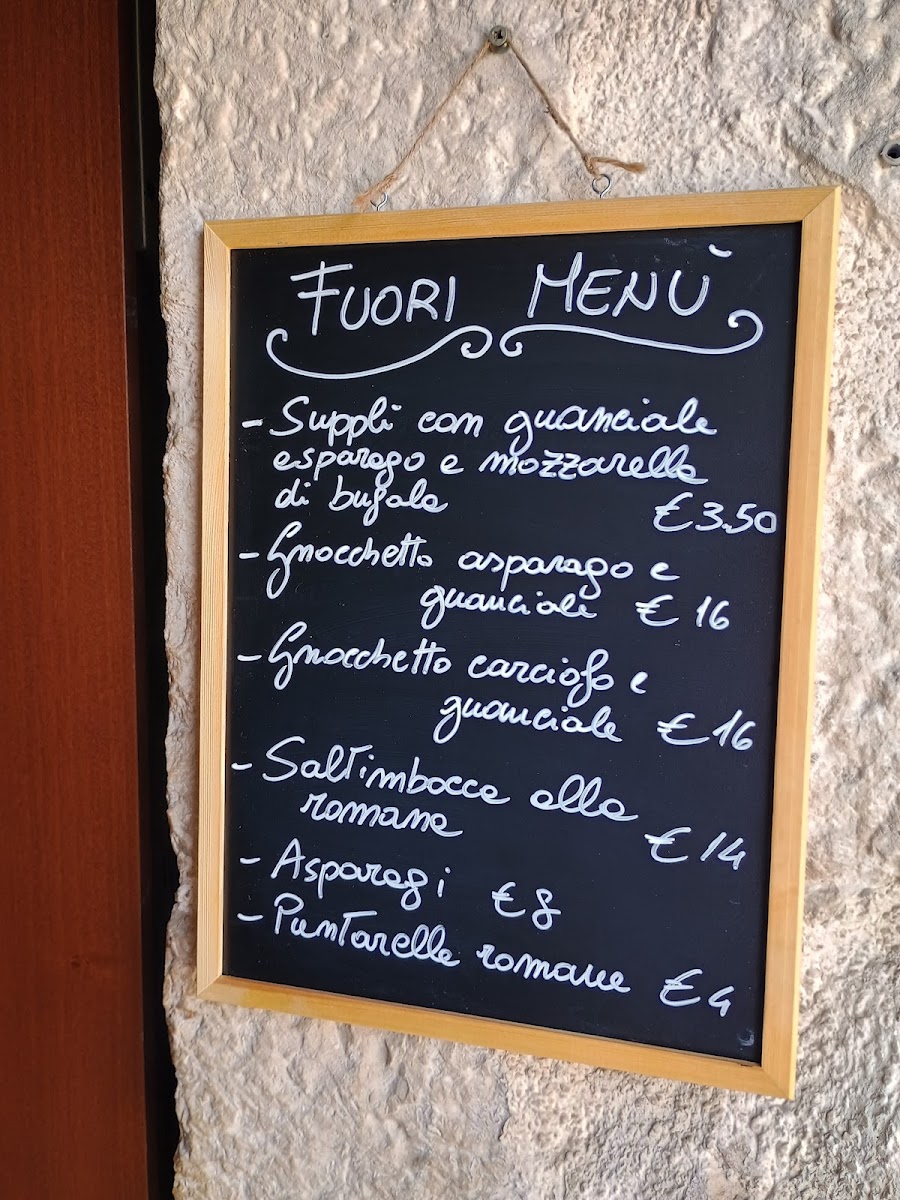 FUORI MENÙ
- Supplì con guanciale
esparago e mozzarella
di bufala
€ 3.50
- Gnocchetto asparago e
guanciale € 16
- Gnocchetto carciofo e
guanciale € 16
- Saltimbocca alla
romana
€ 14
- Asparagi € 8
- Puntarelle romane € 4